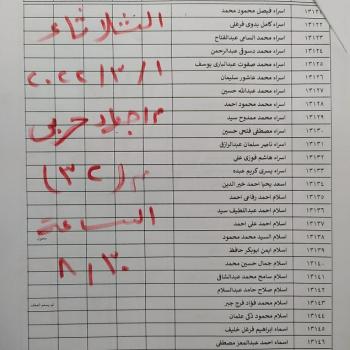 الثلاثاء
٢٠٢٢/٣/١
م/جهاد حربى
م (٣٢)
الساعة
٨,٣٠
اسراء فيصل محمود محمد ١٣١٢١
اسراء كامل بدوى فرغلى ١٣١٢٢
اسراء محمد السامى عبدالفتاح ١٣١٢٣
اسراء محمد دسوقى عبدالرحمن ١٣١٢٤
اسراء محمد صفوت عبدالبارى يوسف ١٣١٢٥
اسراء محمد عاشور سليمان ١٣١٢٦
اسراء محمد عبدالله حسين ١٣١٢٧
اسراء محمد محمود احمد ١٣١٢٨
اسراء محمد ممدوح سيد ١٣١٢٩
اسراء مصطفى فتحى حسين ١٣١٣٠
اسراء ناصر سلمان عبدالرازق ١٣١٣١
اسراء هاشم فوزى على ١٣١٣٢
اسراء يسرى كريم عبده ١٣١٣٣
اسعد يحيا احمد خير الدين ١٣١٣٤
اسلام احمد رفاعى احمد ١٣١٣٥
اسلام احمد عبداللطيف سيد ١٣١٣٦
اسلام احمد على احمد ١٣١٣٧
اسلام السيد محمد محمود ١٣١٣٨
اسلام ايمن ابوبكر حافظ ١٣١٣٩
اسلام جمال حسين محمد ١٣١٤٠
اسلام سامح محمد عبدالشافى ١٣١٤١
اسلام صلاح حامد عبدالسلام ١٣١٤٢
اسلام محمد فؤاد فرج جبر ١٣١٤٣
اسلام محمود ذكى عثمان ١٣١٤٤
اسماء ابراهيم فرغل خليف ١٣١٤٥
اسماء احمد عبدالمعز مصطفى ١٣١٤٦